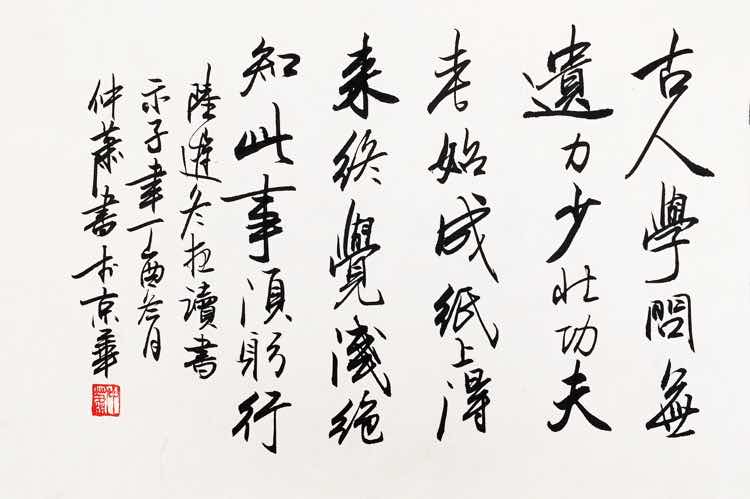 古人學問無
遺力少壯功夫
老始成紙上得
来終覺淺絶
知此事須躬行
陸遊冬夜讀書
示子聿丁酉冬月
仲書於京華